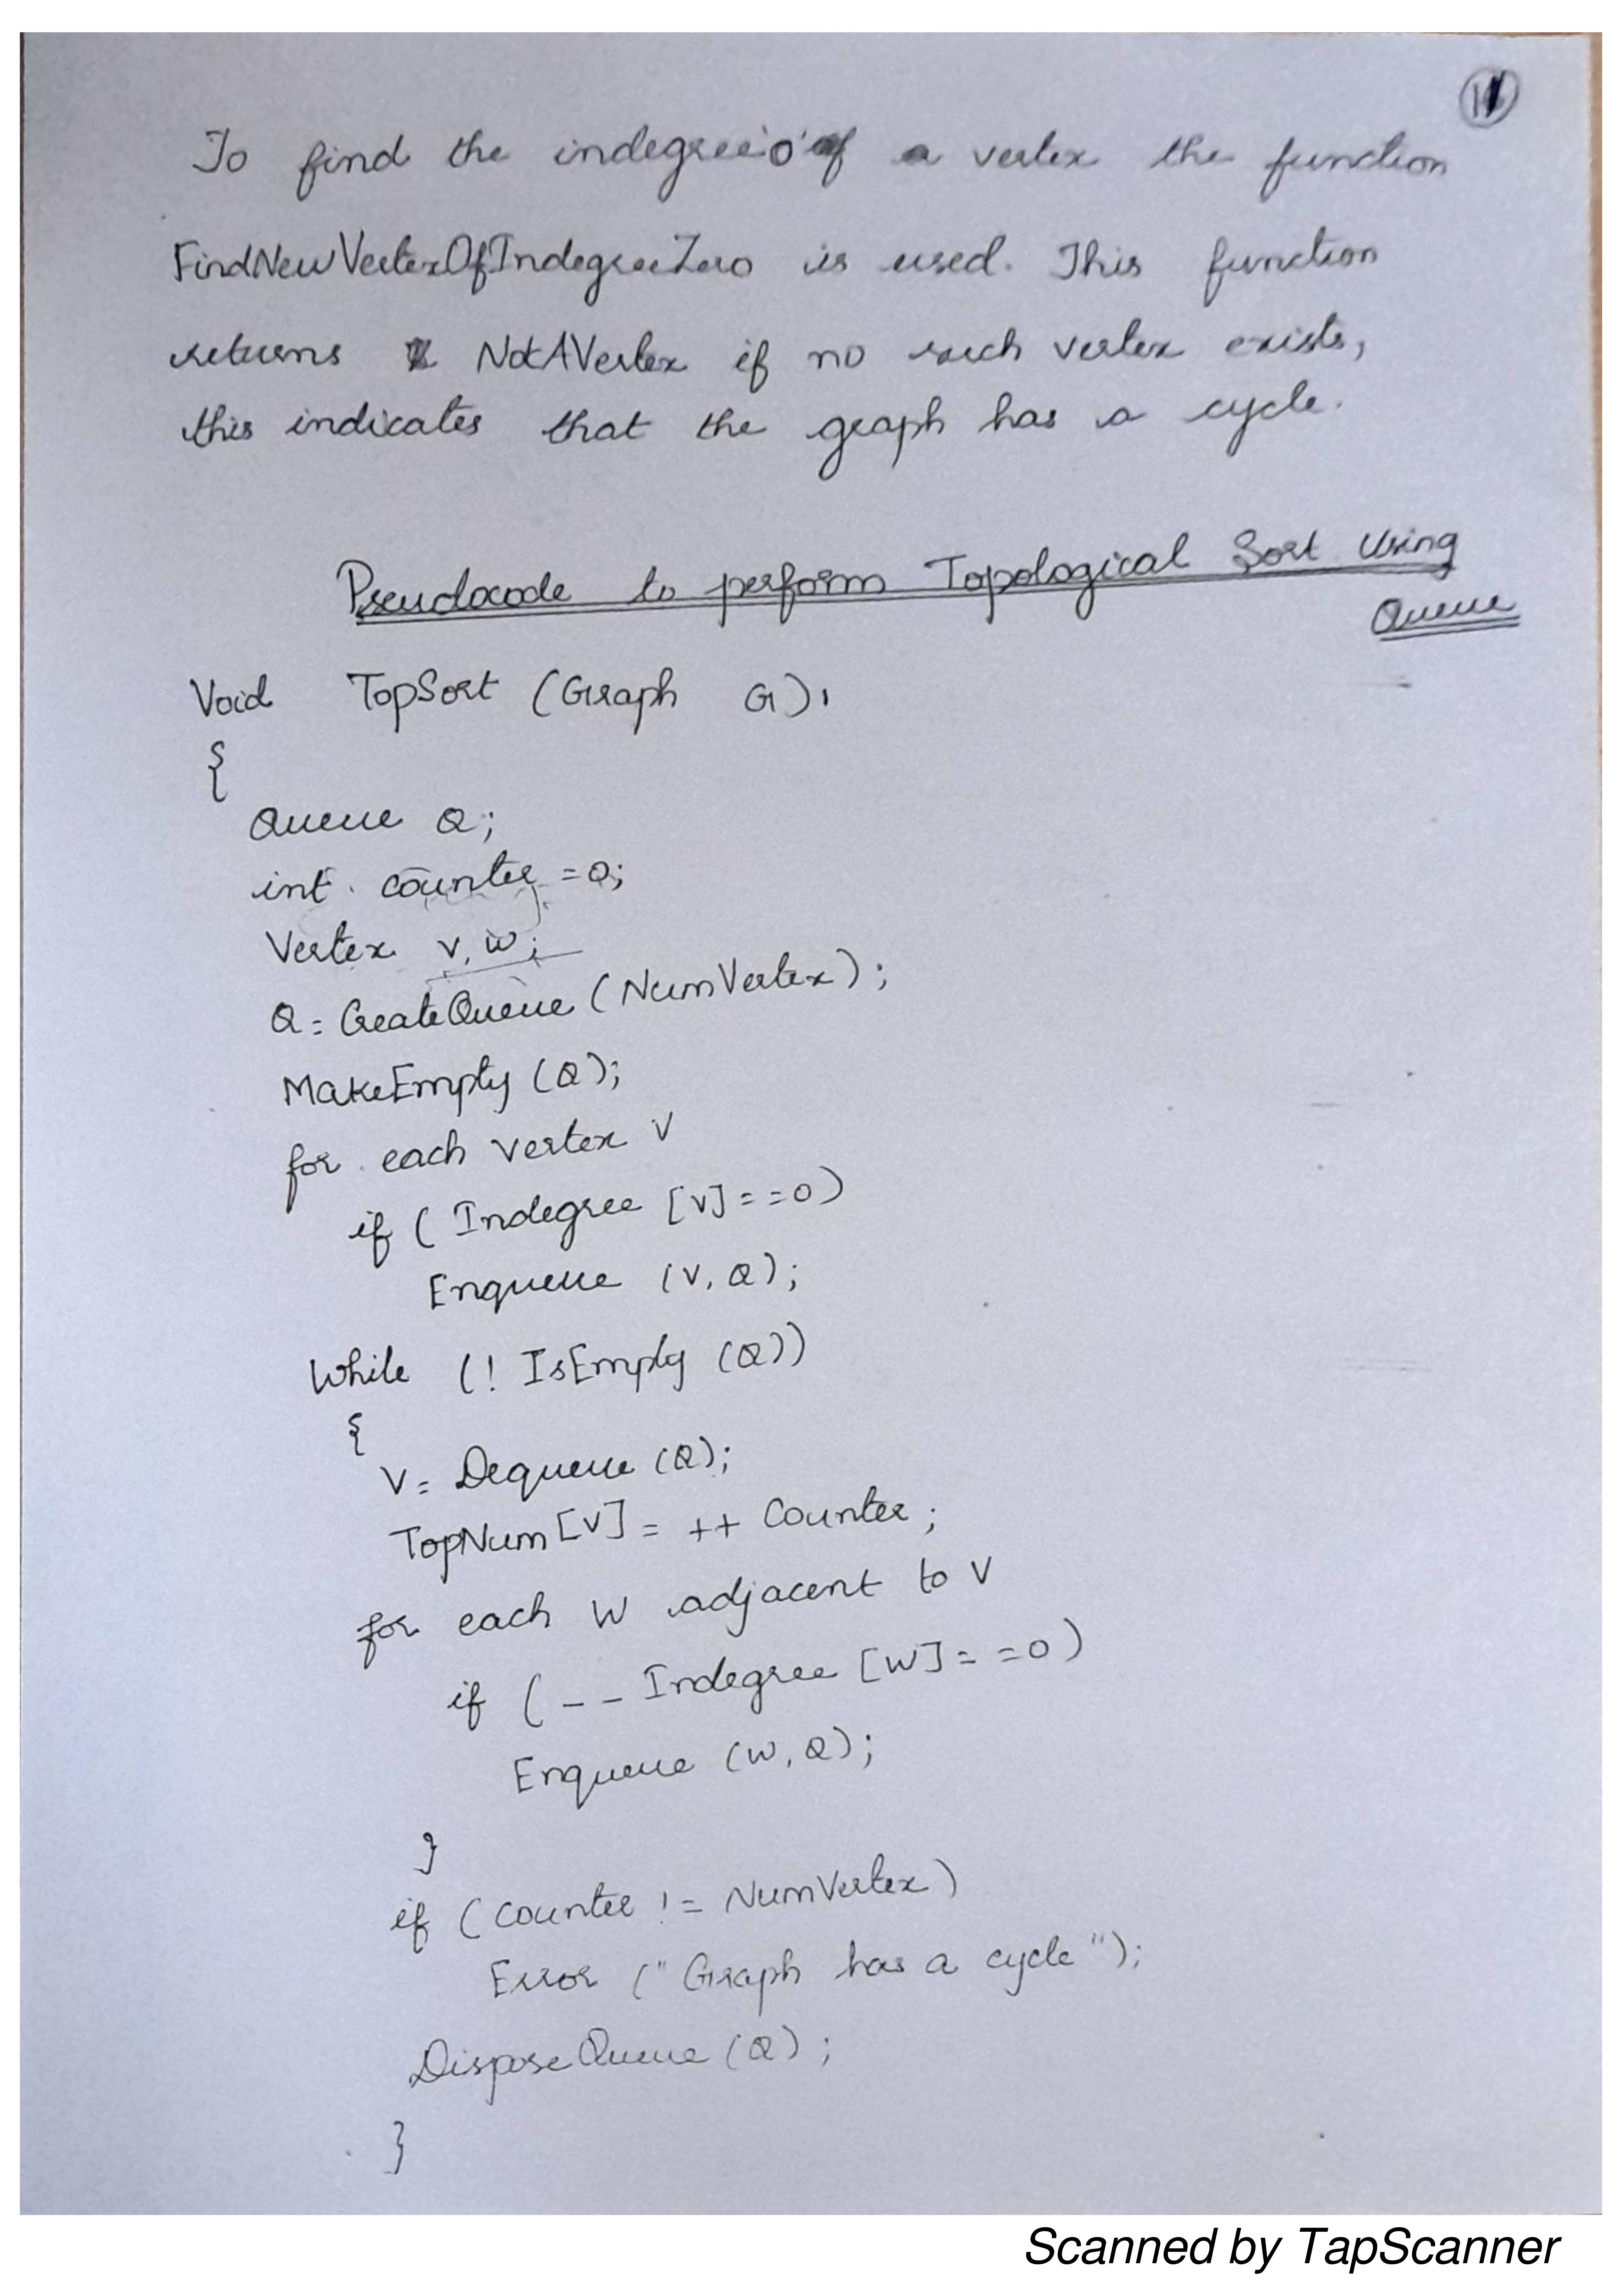 11
To find the indegree '0' of a vertex the function
FindNewVertexOfIndegreeZero is used. This function
returns NotAVertex if no such vertex exists,
this indicates that the graph has a cycle.
Pseudocode to perform Topological Sort Using
Queue
Void TopSort (Graph G),
{
Queue Q;
int counter = 0;
Vertex v, w;
Q = CreateQueue (NumVertex);
MakeEmpty (Q);
for each vertex V
if ( Indegree [V] == 0)
Enqueue (V, Q);
While (! IsEmpty (Q))
{
V = Dequeue (Q);
TopNum [V] = ++ Counter;
for each W adjacent to V
if ( -- Indegree [W] == 0)
Enqueue (W, Q);
}
if (Counter != NumVertex)
Error (" Graph has a cycle ");
DisposeQueue (Q);
}
Scanned by TapScanner